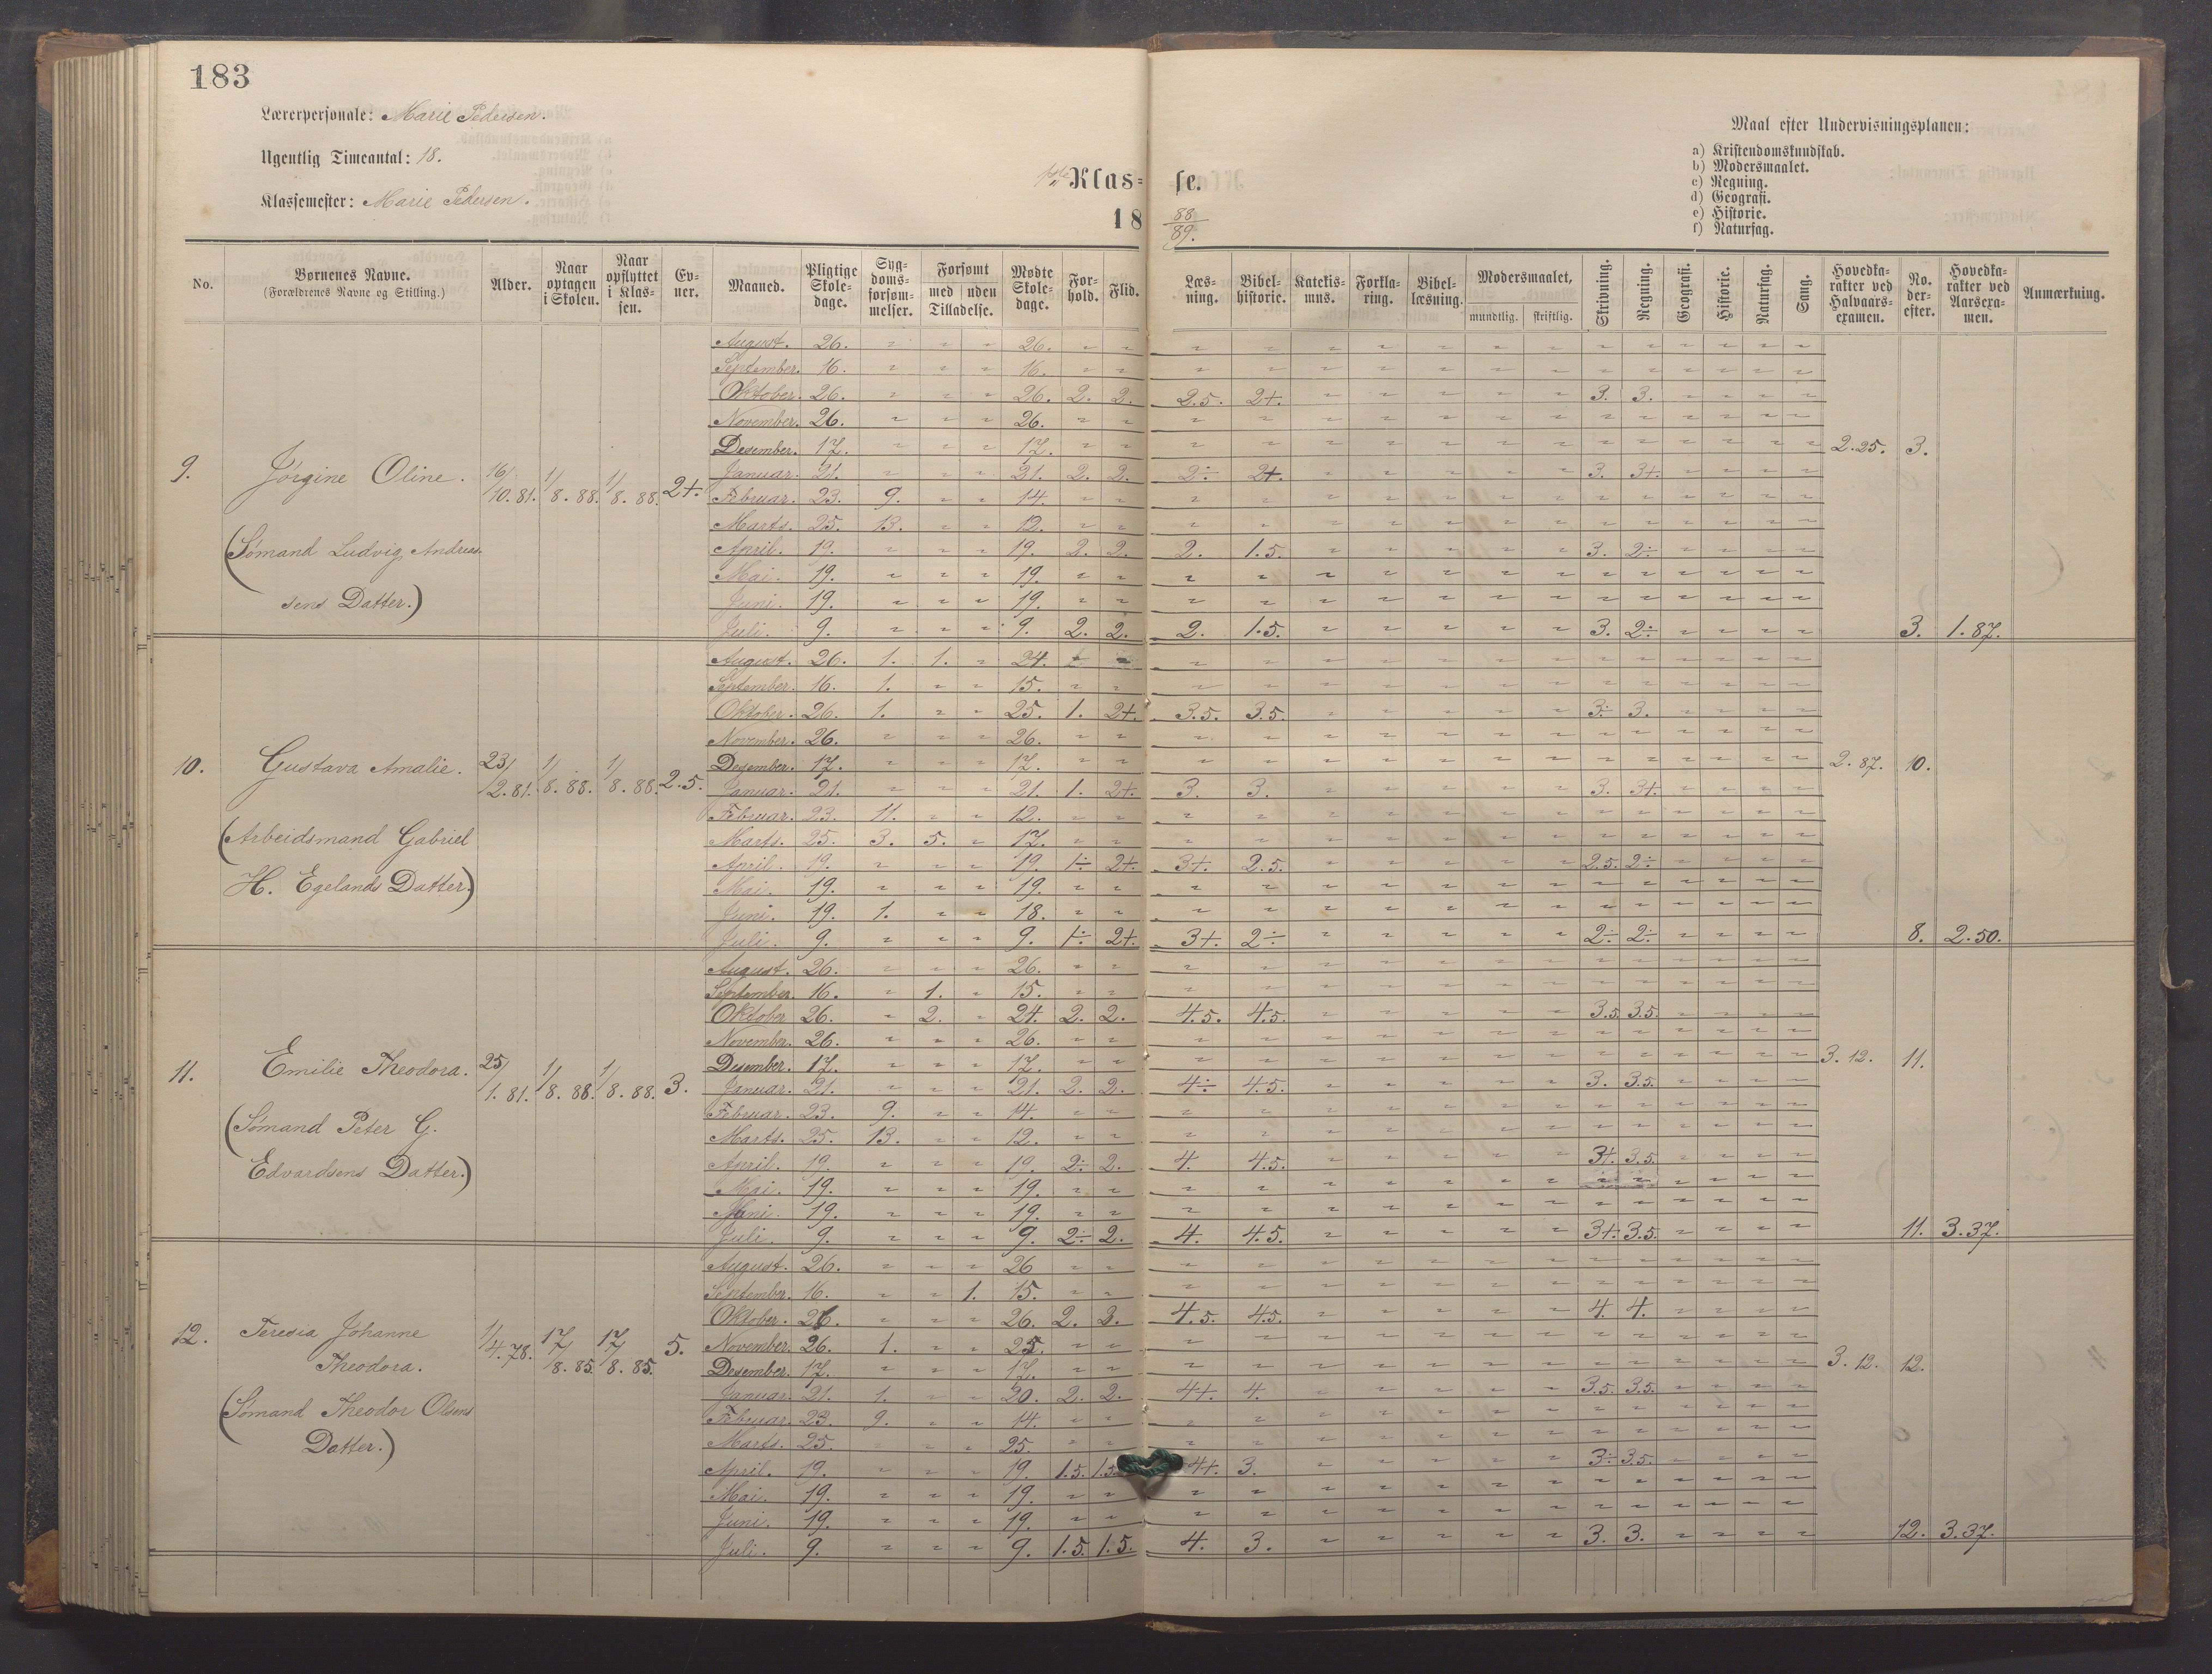 183
Lærerpersonale: Marie Pedersen.
Ugentlig Timeantal: 18.
Klassemester: Marie Pedersen.
Klas= se.
18 88/89.
Maal efter Undervisningsplanen:
a) Kristendomskundskab.
b) Modersmaalet.
c) Regning.
d) Geografi.
e) Historie.
f) Naturfag.
No. | Børnenes Navne. (Forældrenes Navne og Stilling.) | Alder. | Naar optagen i Skolen. | Naar opflyttet i Klassen. | Evner. | Maaned. | Pligtige Skoledage. | Sygdomsforsømmelser. | Forsømt med uden Tilladelse. | Mødte Skoledage. | Forhold. | Flid. | Læsning. | Bibelhistorie. | Katekismus. | Forklaring. | Bibellæsning. | Modersmaalet, mundtlig. skriftlig. | Skrivning. | Regning. | Geografi. | Historie. | Naturfag. | Sang. | Hovedkarakter ved Halvaarsexamen. | No. derefter. | Hovedkarakter ved Aarsexamen. | Anmærkning.
9. Jørgine Oline. 16/10.81. 1/8.88. 1/8.88. 2+.
(Sømand Ludvig Andreas-
sens Datter.)
August. 26. " " " 26. " "
September. 16. " " " 16. " "
Oktober. 26. " " " 26. 2. 2. 2.5. 2+. 3. 3.
November. 26. " " " 26. " "
Desember. 17. " " " 17. " " 2.25. 3.
Januar. 21. " " " 21. 2. 2. 2÷ 2+ 3. 3+.
Februar. 23. 9. " " 14. " "
Marts. 25. 13. " " 12. " "
April. 19. " " " 19. 2. 2. 2. 1.5. 3. 2÷
Mai. 19. " " " 19. " "
Juni. 19. " " " 19. " "
Juli. 9. " " " 9. 2. 2. 2. 1.5. 3. 2÷ 3. 1.87.
10. Gustava Amalie. 23/2.81. 1/8.88. 1/8.88. 2.5.
(Arbeidsmand Gabriel
H. Egelands Datter.)
August. 26. 1. 1. " 24. " "
September. 16. 1. " " 15. " "
Oktober. 26. 1. " " 25. 1. 2+. 3.5. 3.5. 3÷ 3.
November. 26. " " " 26. " "
Desember. 17. " " " 17. " " 2.87. 10.
Januar. 21. " " " 21. 1. 2+. 3. 3. 3. 3+.
Februar. 23. 11. " " 12. " "
Marts. 25. 3. 5. " 17. " "
April. 19. " " " 19 1÷ 2+ 3+. 2.5. 2.5. 2÷
Mai. 19. " " " 19. " "
Juni. 19. 1. " " 18. " "
Juli. 9. " " " 9. 1÷ 2+. 3+. 2÷ 2÷ 2÷ 8. 2.50.
11. Emilie Theodora. 25/1.81. 1/8.88. 1/8.88. 3.
(Sømand Peter G.
Edvardsens Datter.)
August. 26. " " " 26. " "
September. 16. " 1. " 15. " "
Oktober. 26. " 2. " 24. 2. 2. 4.5. 4.5. 3.5. 3.5.
November. 26. " " " 26. " "
Desember. 17. " " " 17. " " 3.12. 11.
Januar. 21. " " " 21. 2. 2. 4÷ 4.5. 3. 3.5.
Februar. 23. 9. " " 14. " "
Marts. 25. 13. " " 12. " "
April. 19. " " " 19. 2÷ 2. 4. 4.5. 3+. 3.5.
Mai. 19. " " " 19. " "
Juni. 19. " " " 19. " "
Juli. 9. " " " 9. 2÷ 2. 4. 4.5. 3+. 3.5. 11. 3.37.
12. Teresia Johanne 1/4.78. 17/8.85. 17/8.85. 5.
Theodora.
(Sømand Theodor Olsens
Datter.)
August. 26. " " " 26 " "
September. 16. " " 1. 15. " "
Oktober. 26. " " " 26. 2. 3. 4.5. 4.5. 4. 4.
November. 26. 1. " " 25. " "
Desember. 17. " " " 17. " " 3.12. 12.
Januar. 21. 1. " " 20. 2. 2. 4+. 4. 3.5. 3.5.
Februar. 23. 9. " " 14. " "
Marts. 25. " " " 25. " "
April. 19. " " " 19. 1.5. 1.5. 4+. 3. 3÷ 3.5.
Mai. 19. " " " 19. " "
Juni. 19. " " " 19. " "
Juli. 9. " " " 9. 1.5. 1.5. 4. 3. 3. 3. 12. 3.37.